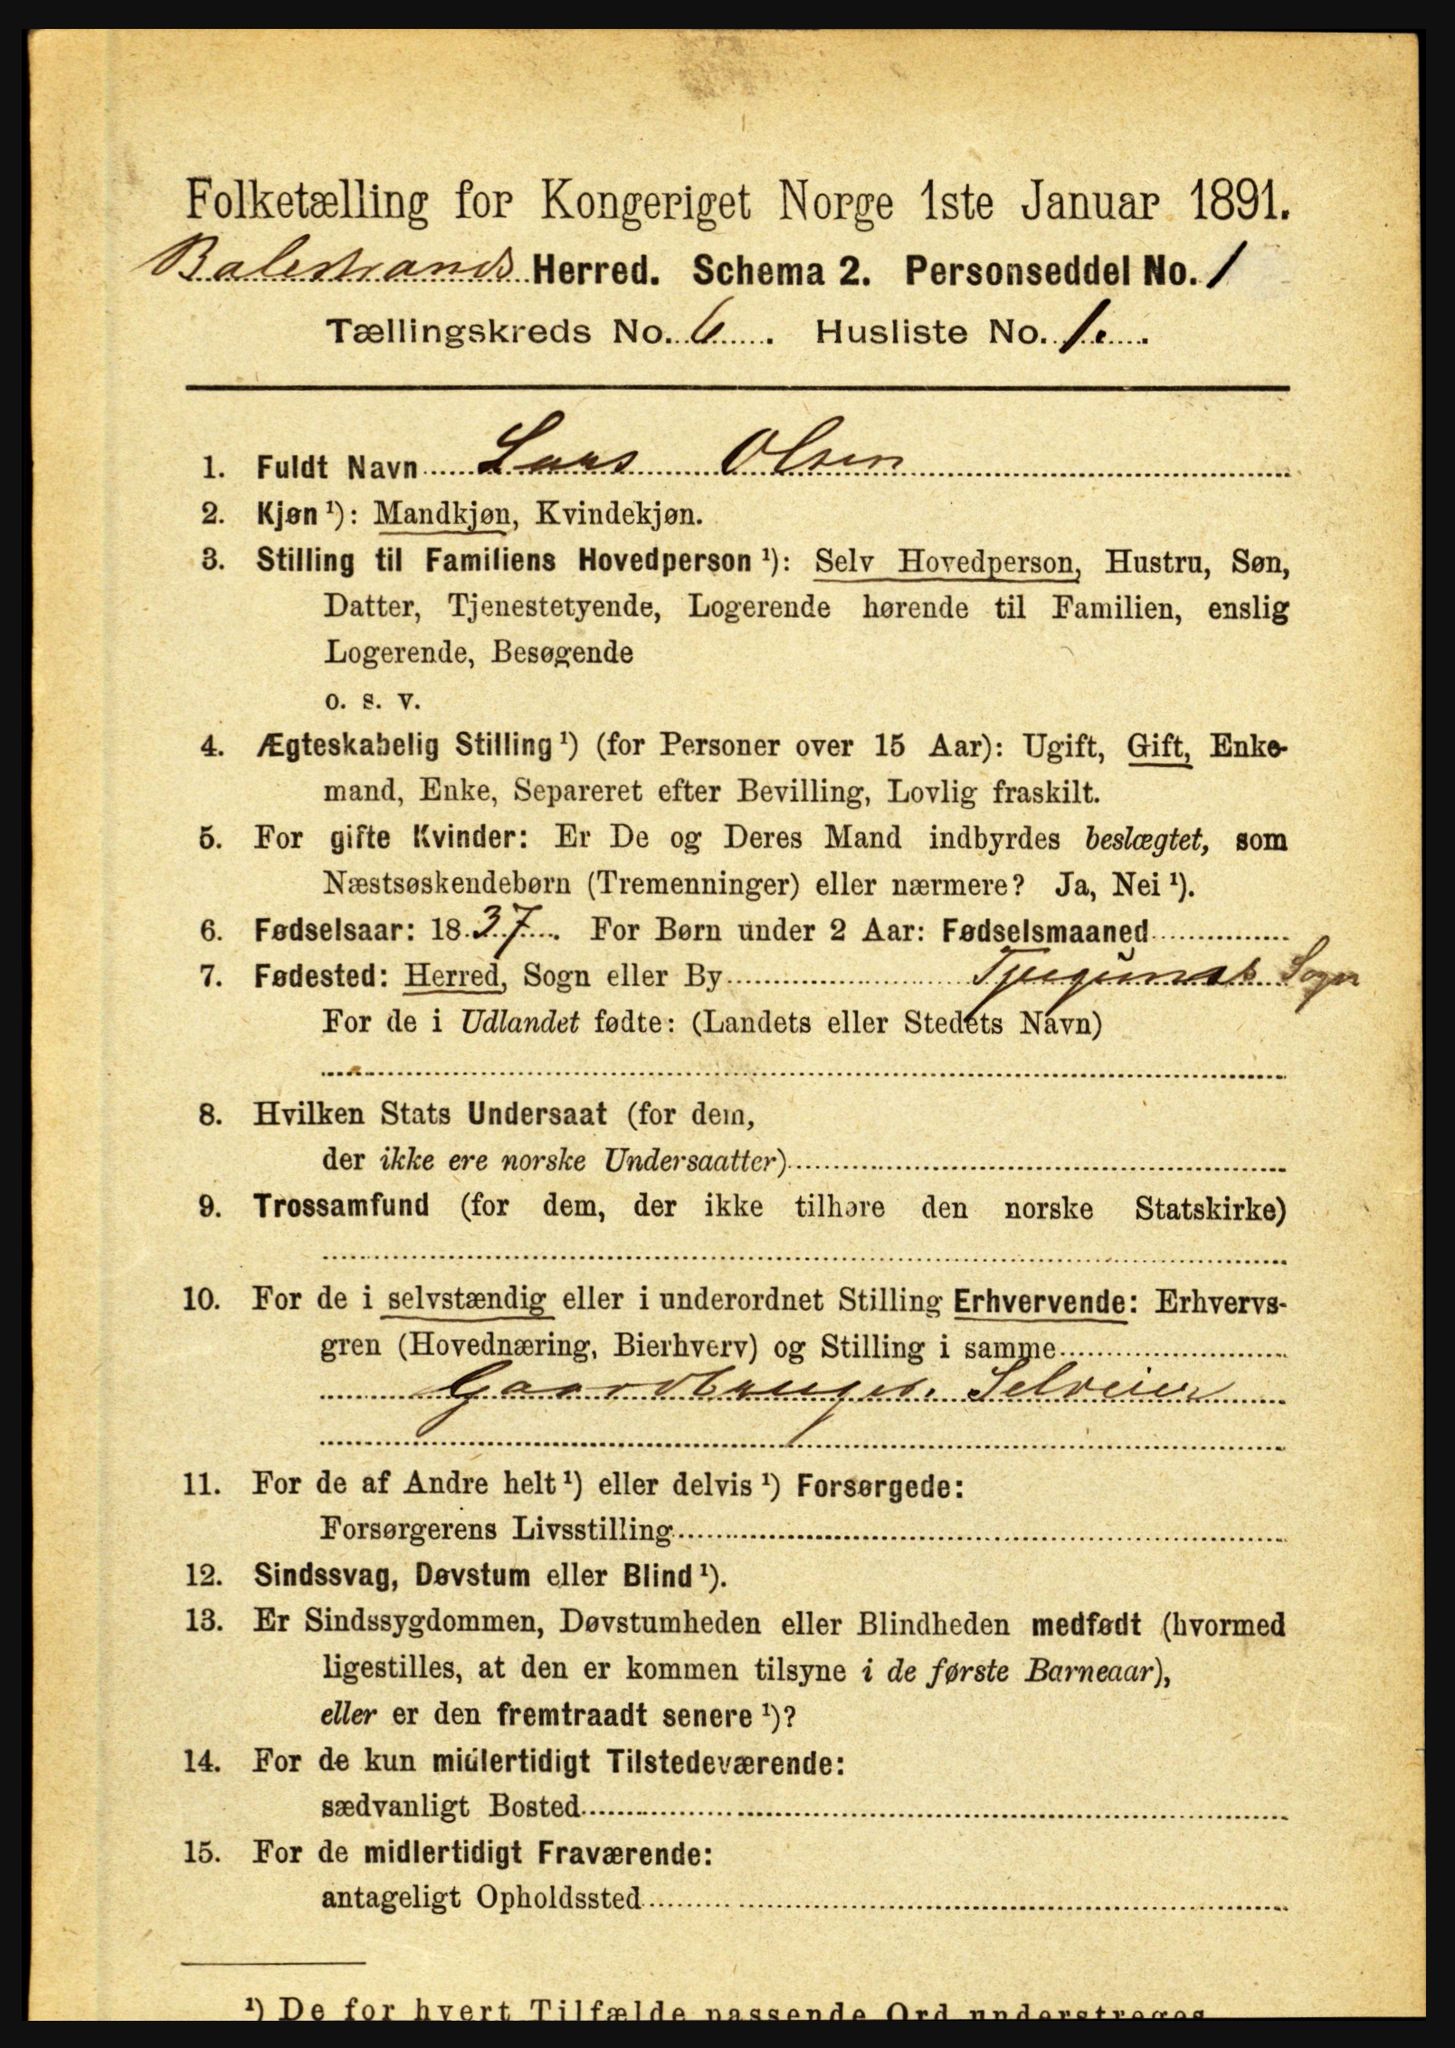 Folketælling for Kongeriget Norge 1ste Januar 1891.
Balestrands Herred. Schema 2. Personseddel No. 1
Tællingskreds No. 6. Husliste No. 1.
1. Fuldt Navn Lars Olsen
2. Kjøn ¹): Mandkjøn, Kvindekjøn.
3. Stilling til Familiens Hovedperson ¹): Selv Hovedperson, Hustru, Søn,
Datter, Tjenestetyende, Logerende hørende til Familien, enslig
Logerende, Besøgende
o. s. v.
4. Ægteskabelig Stilling ¹) (for Personer over 15 Aar): Ugift, Gift, Enke-
mand, Enke, Separeret efter Bevilling, Lovlig fraskilt.
5. For gifte Kvinder: Er De og Deres Mand indbyrdes beslægtet, som
Næstsøskendebørn (Tremenninger) eller nærmere? Ja, Nei ¹).
6. Fødselsaar: 1837. For Børn under 2 Aar: Fødselsmaaned
7. Fødested: Herred, Sogn eller By Sogn
For de i Udlandet fødte: (Landets eller Stedets Navn)
8. Hvilken Stats Undersaat (for dem,
der ikke ere norske Undersaatter)
9. Trossamfund (for dem, der ikke tilhøre den norske Statskirke)
10. For de i selvstændig eller i underordnet Stilling Erhvervende: Erhvervs-
gren (Hovednæring, Bierhverv) og Stilling i samme
Gaardbruger. Selveier
11. For de af Andre helt ¹) eller delvis ¹) Forsørgede:
Forsørgerens Livsstilling
12. Sindssvag, Døvstum eller Blind ¹).
13. Er Sindssygdommen, Døvstumheden eller Blindheden medfødt (hvormed
ligestilles, at den er kommen tilsyne i de første Barneaar),
eller er den fremtraadt senere ¹)?
14. For de kun midlertidigt Tilstedeværende:
sædvanligt Bosted
15. For de midlertidigt Fraværende:
antageligt Opholdssted
¹) De for hvert Tilfælde passende Ord understreges